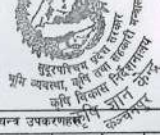 सुदूरपश्चिम प्रदेश सरकार
भूमि व्यवस्था, कृषि तथा सहकारी मन्त्रालय
कृषि विकास निर्देशनालय
कृषि ज्ञान केन्द्र
कञ्चनपुर
यन्त्र उपकरणहरु